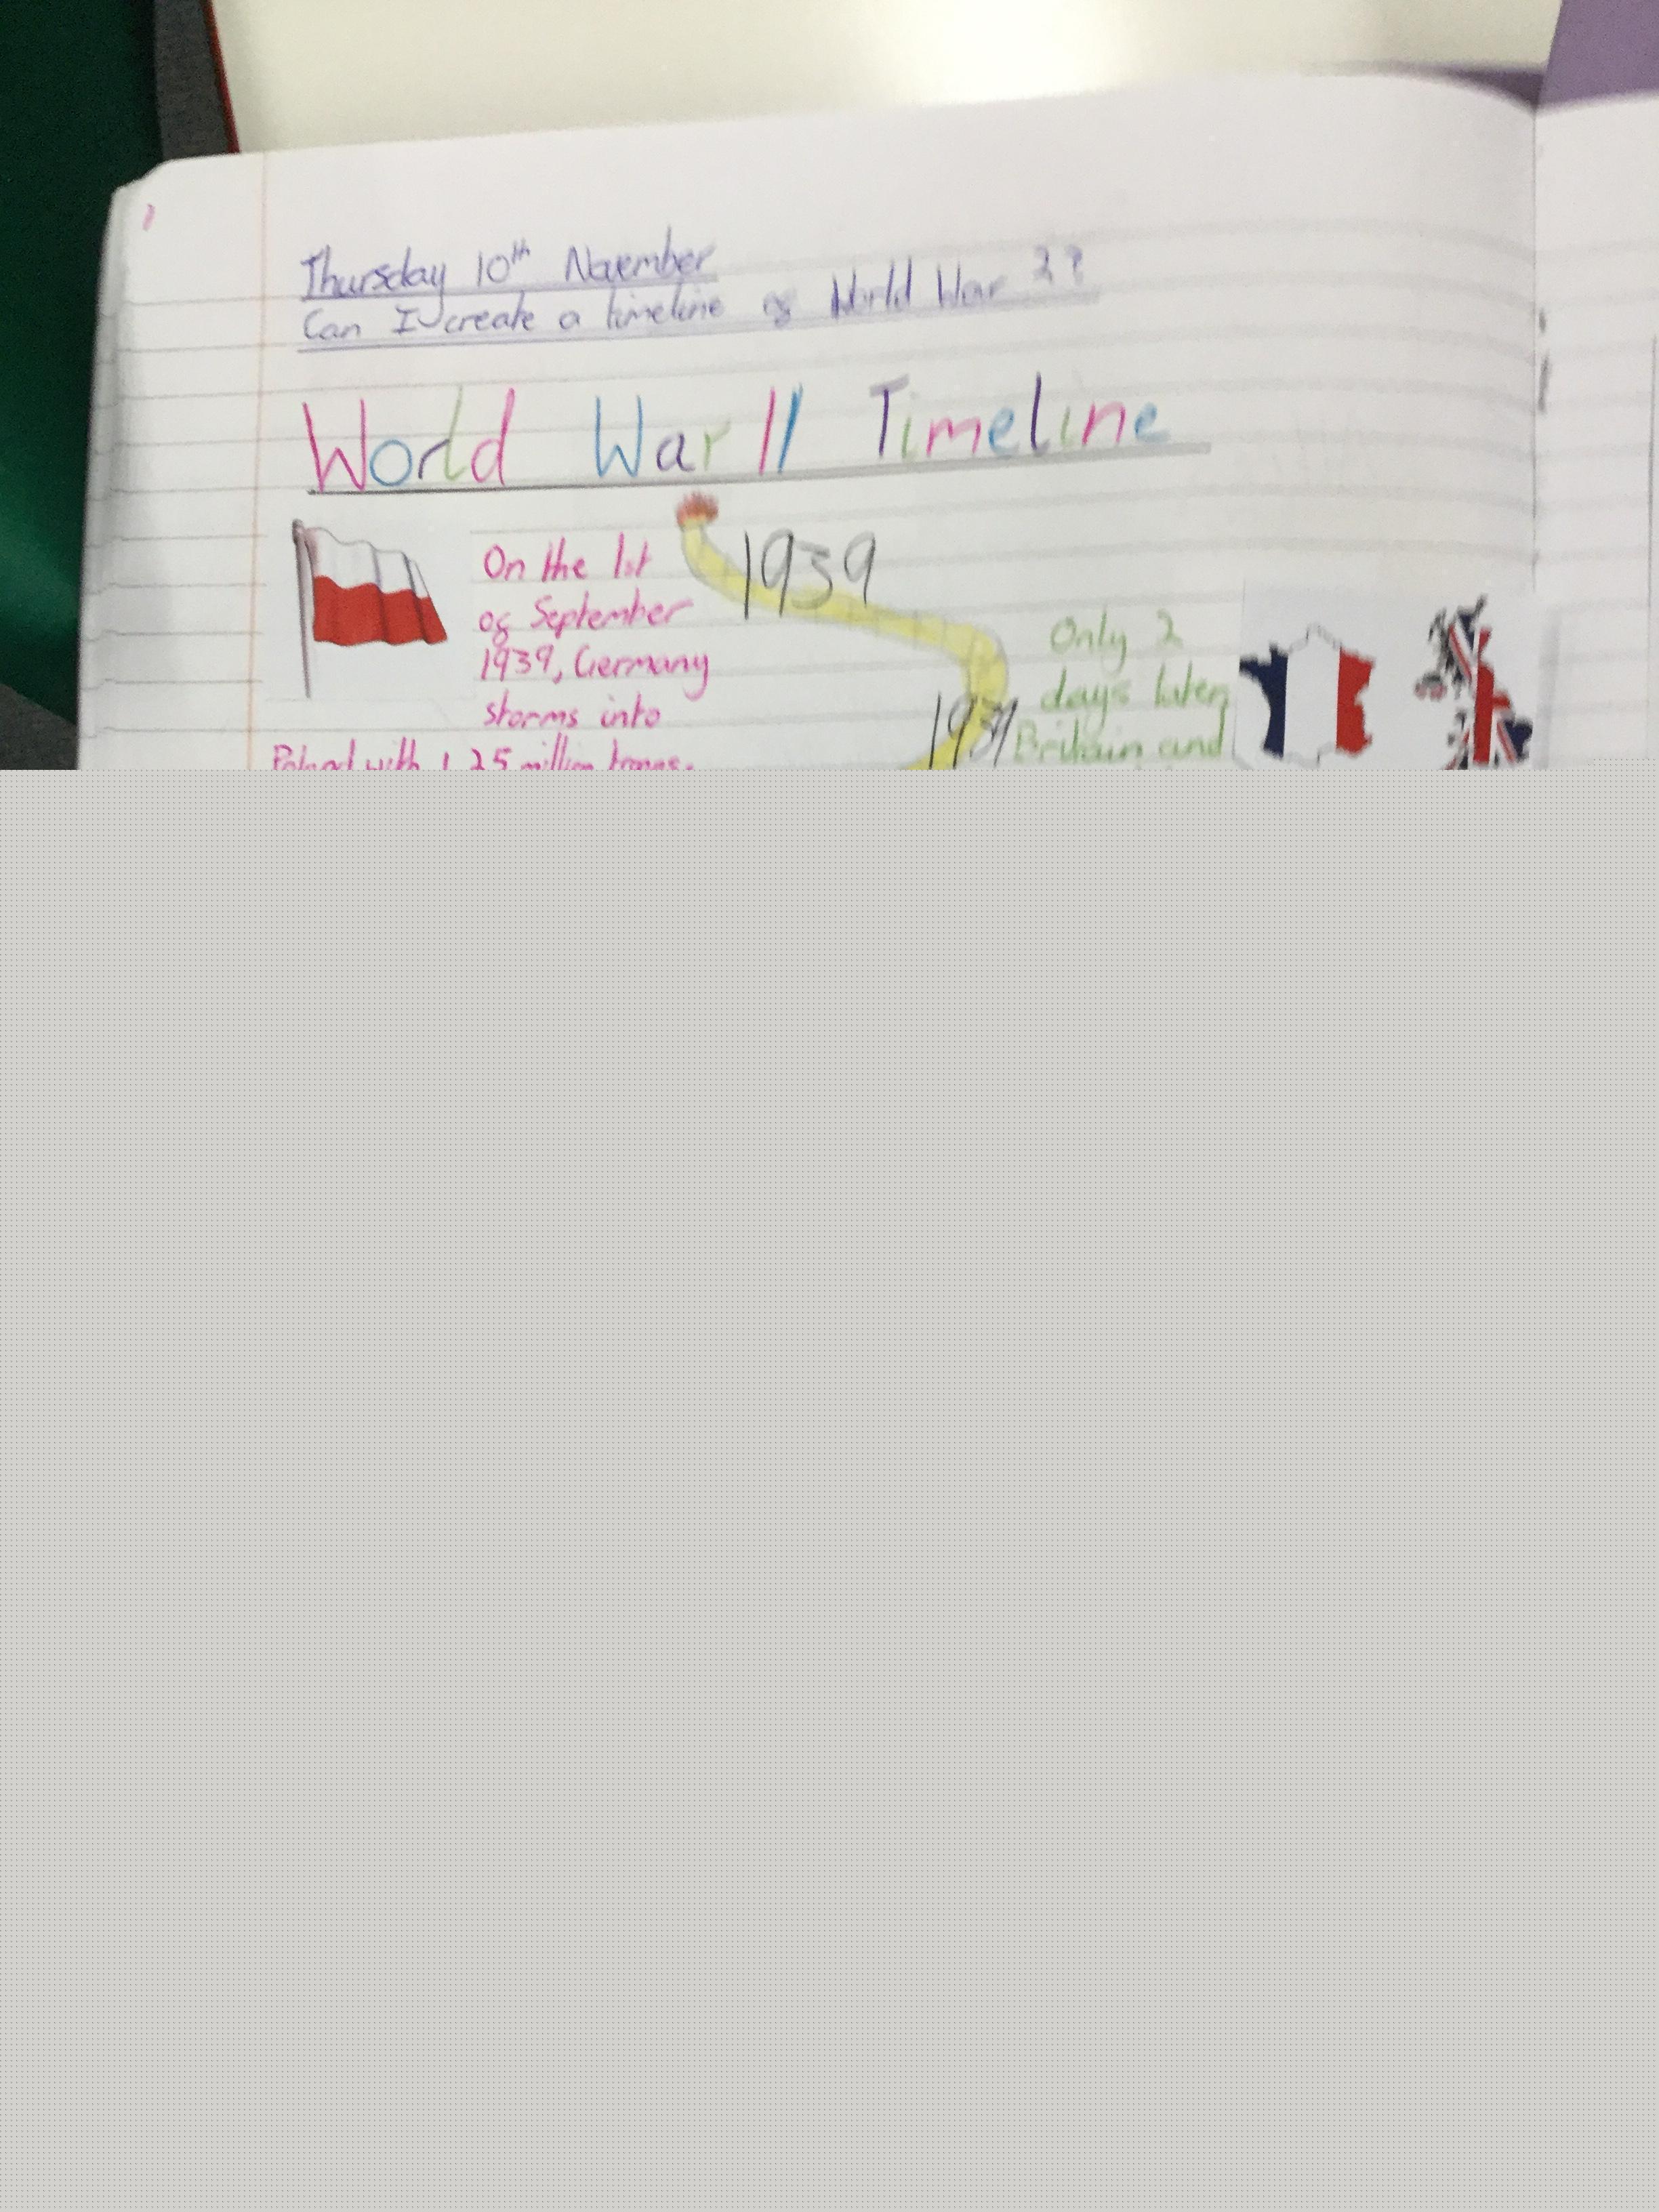 Thursday 10th November
Can I create a timeline of World War 2?
World War II Timeline
1939
On the 1st
of September
1939, Germany
storms into
Poland with 1.25 million troops.
1939
Only 2
days later,
Britain and